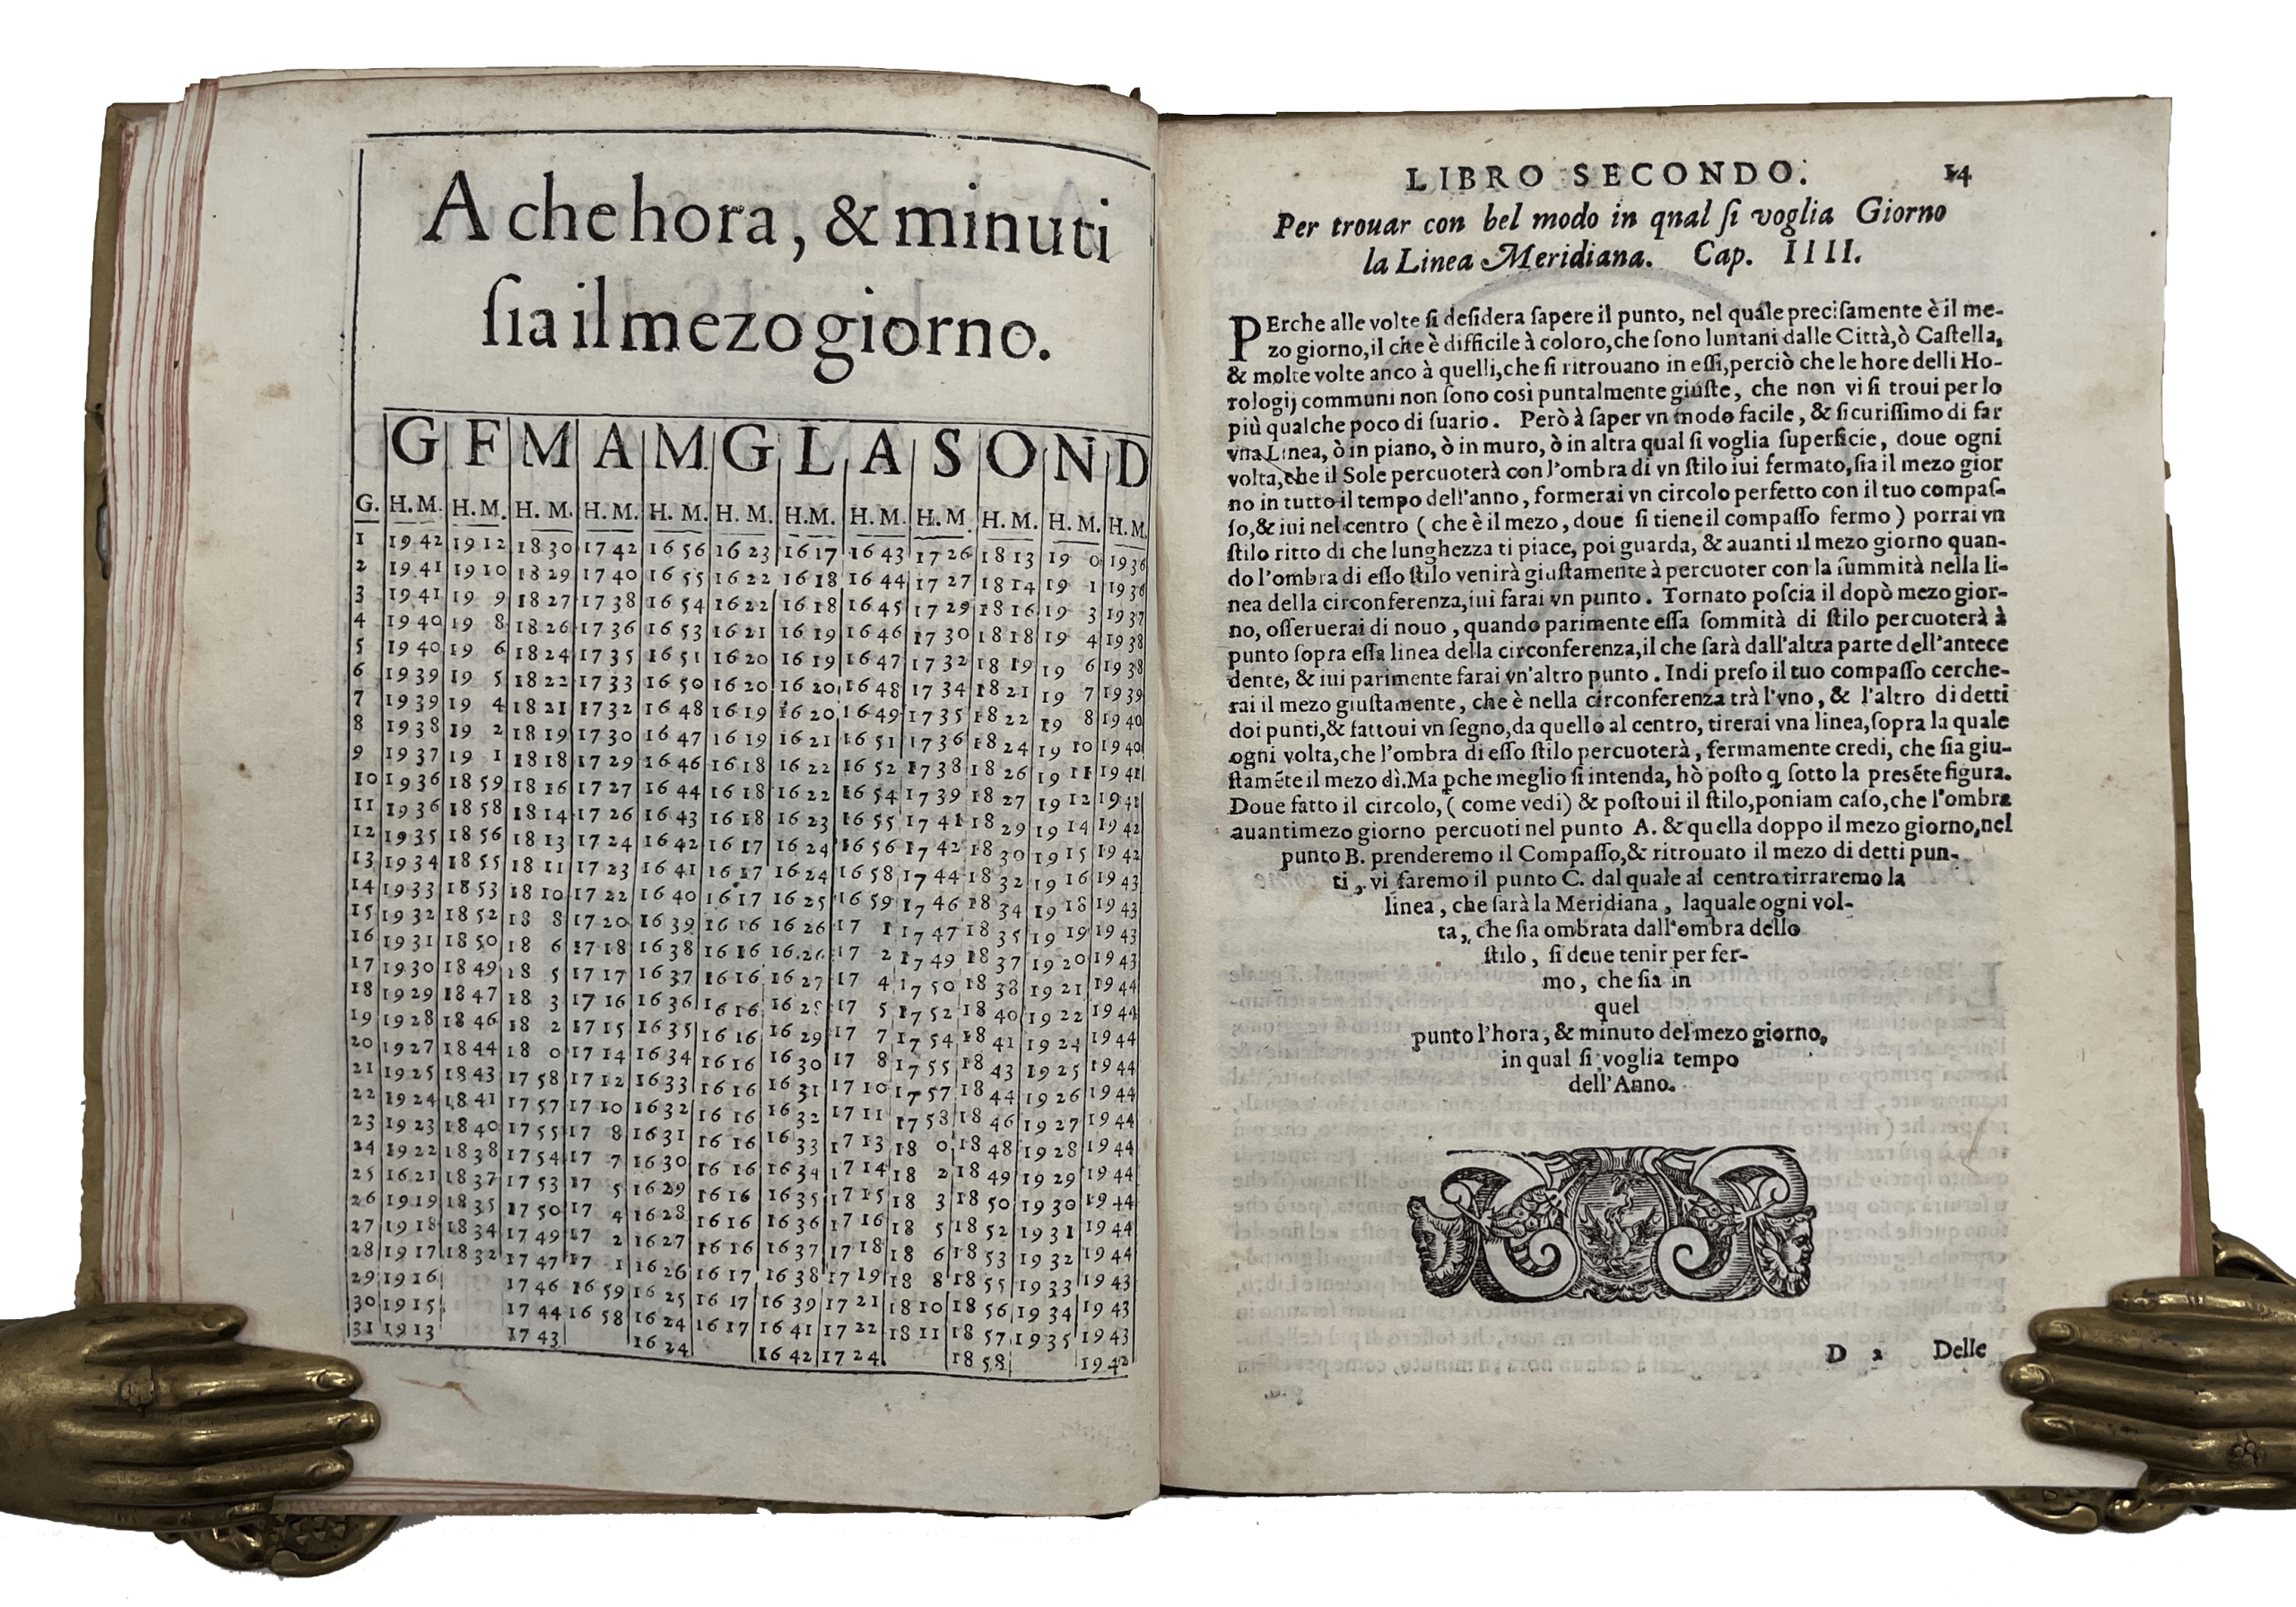 A che hora, & minuti
ſia il mezo giorno.
G F M A M G L A S O N D
G. H. M. H. M. H. M. H. M. H. M. H. M. H. M. H. M. H. M. H. M. H. M. H. M.
1 19 42 19 12 18 30 17 42 16 56 16 23 16 17 16 43 17 26 18 13 19 0 19 36
2 19 41 19 10 18 29 17 40 16 55 16 22 16 18 16 44 17 27 18 14 19 1 19 36
3 19 41 19 9 18 27 17 38 16 54 16 22 16 18 16 45 17 29 18 16 19 3 19 37
4 19 40 19 8 18 26 17 36 16 53 16 21 16 19 16 46 17 30 18 18 19 4 19 38
5 19 40 19 6 18 24 17 35 16 51 16 20 16 19 16 47 17 32 18 19 19 6 19 38
6 19 39 19 5 18 22 17 33 16 50 16 20 16 20 16 48 17 34 18 21 19 7 19 39
7 19 39 19 4 18 21 17 32 16 48 16 19 16 20 16 49 17 35 18 22 19 8 19 40
8 19 38 19 2 18 19 17 30 16 47 16 19 16 21 16 51 17 36 18 24 19 10 19 40
9 19 37 19 1 18 18 17 29 16 46 16 18 16 22 16 52 17 38 18 26 19 11 19 41
10 19 36 18 59 18 16 17 27 16 44 16 18 16 22 16 54 17 39 18 27 19 12 19 41
11 19 36 18 58 18 14 17 26 16 43 16 18 16 23 16 55 17 41 18 29 19 14 19 42
12 19 35 18 56 18 13 17 24 16 42 16 17 16 24 16 56 17 42 18 30 19 15 19 42
13 19 34 18 55 18 11 17 23 16 41 16 17 16 24 16 58 17 44 18 32 19 16 19 43
14 19 33 18 53 18 10 17 22 16 40 16 17 16 25 16 59 17 46 18 34 19 18 19 43
15 19 32 18 52 18 8 17 20 16 39 16 16 16 26 17 1 17 47 18 35 19 19 19 43
16 19 31 18 50 18 6 17 18 16 38 16 16 16 26 17 2 17 49 18 37 19 20 19 43
17 19 30 18 49 18 5 17 17 16 37 16 16 16 27 17 4 17 50 18 38 19 21 19 44
18 19 29 18 47 18 3 17 16 16 36 16 16 16 28 17 5 17 52 18 40 19 22 19 44
19 19 28 18 46 18 2 17 15 16 35 16 16 16 29 17 7 17 54 18 41 19 24 19 44
20 19 27 18 44 18 0 17 14 16 34 16 16 16 30 17 8 17 55 18 43 19 25 19 44
21 19 25 18 43 17 58 17 12 16 33 16 16 16 31 17 10 17 57 18 44 19 26 19 44
22 19 24 18 41 17 57 17 10 16 32 16 16 16 32 17 11 17 58 18 46 19 27 19 44
23 19 23 18 40 17 55 17 8 16 31 16 16 16 33 17 13 18 0 18 48 19 28 19 44
24 19 22 18 38 17 54 17 7 16 30 16 16 16 34 17 14 18 2 18 49 19 29 19 44
25 16 21 18 37 17 53 17 5 16 29 16 16 16 35 17 15 18 3 18 50 19 30 19 44
26 19 19 18 35 17 50 17 4 16 28 16 16 16 36 17 16 18 5 18 52 19 31 19 44
27 19 18 18 34 17 49 17 2 16 27 16 16 16 37 17 18 18 6 18 53 19 32 19 44
28 19 17 18 32 17 47 17 1 16 26 16 17 16 38 17 19 18 8 18 55 19 33 19 43
29 19 16 17 46 16 59 16 25 16 17 16 39 17 21 18 10 18 56 19 34 19 43
30 19 15 17 44 16 58 16 24 16 17 16 41 17 22 18 11 18 57 19 35 19 43
31 19 13 17 43 16 24 16 42 17 24 18 58 19 42
LIBRO SECONDO. 14
Per trouar con bel modo in qnal ſi voglia Giorno
la Linea Meridiana. Cap. IIII.
PErche alle volte ſi deſidera ſapere il punto, nel quale preciſamente è il me-
zo giorno, il che è difficile à coloro, che ſono luntani dalle Città, ò Caſtella,
& molte volte anco à quelli, che ſi ritrouano in eſſi, perciò che le hore delli Ho-
rologij communi non ſono così puntalmente giuſte, che non vi ſi troui per lo
più qualche poco di ſuario. Però à ſaper vn modo facile, & ſicuriſſimo di far
vna Linea, ò in piano, ò in muro, ò in altra qual ſi voglia ſuperficie, doue ogni
volta, che il Sole percuoterà con l'ombra di vn ſtilo iui fermato, ſia il mezo gior
no in tutto il tempo dell'anno, formerai vn circolo perfetto con il tuo compaſ-
ſo, & iui nel centro ( che è il mezo, doue ſi tiene il compaſſo fermo ) porrai vn
ſtilo ritto di che lunghezza ti piace, poi guarda, & auanti il mezo giorno quan-
do l'ombra di eſſo ſtilo venirà giuſtamente à percuoter con la ſummità nella li-
nea della circonferenza, iui farai vn punto. Tornato poſcia il dopò mezo gior-
no, oſſeruerai di nouo, quando parimente eſſa ſommità di ſtilo percuoterà à
punto ſopra eſſa linea della circonferenza, il che ſarà dall'altra parte dell'antece
dente, & iui parimente farai vn'altro punto. Indi preſo il tuo compaſſo cerche-
rai il mezo giuſtamente, che è nella circonferenza trà l'vno, & l'altro di detti
doi punti, & fattoui vn ſegno, da quello al centro, tirerai vna linea, ſopra la quale
ogni volta, che l'ombra di eſſo ſtilo percuoterà, fermamente credi, che ſia giu-
ſtaméte il mezo dì. Ma pche meglio ſi intenda, hò poſto q̃ ſotto la preséte figura.
Doue fatto il circolo, ( come vedi ) & poſtoui il ſtilo, poniam caſo, che l'ombra
auanti mezo giorno percuoti nel punto A. & quella doppo il mezo giorno, nel
punto B. prenderemo il Compaſſo, & ritrouato il mezo di detti pun-
ti, vi faremo il punto C. dal quale al centro tirraremo la
linea, che ſarà la Meridiana, laquale ogni vol-
ta, che ſia ombrata dall'ombra dello
ſtilo, ſi deue tenir per fer-
mo, che ſia in
quel
punto l'hora, & minuto del mezo giorno,
in qual ſi voglia tempo
dell'Anno.
D 2 Delle